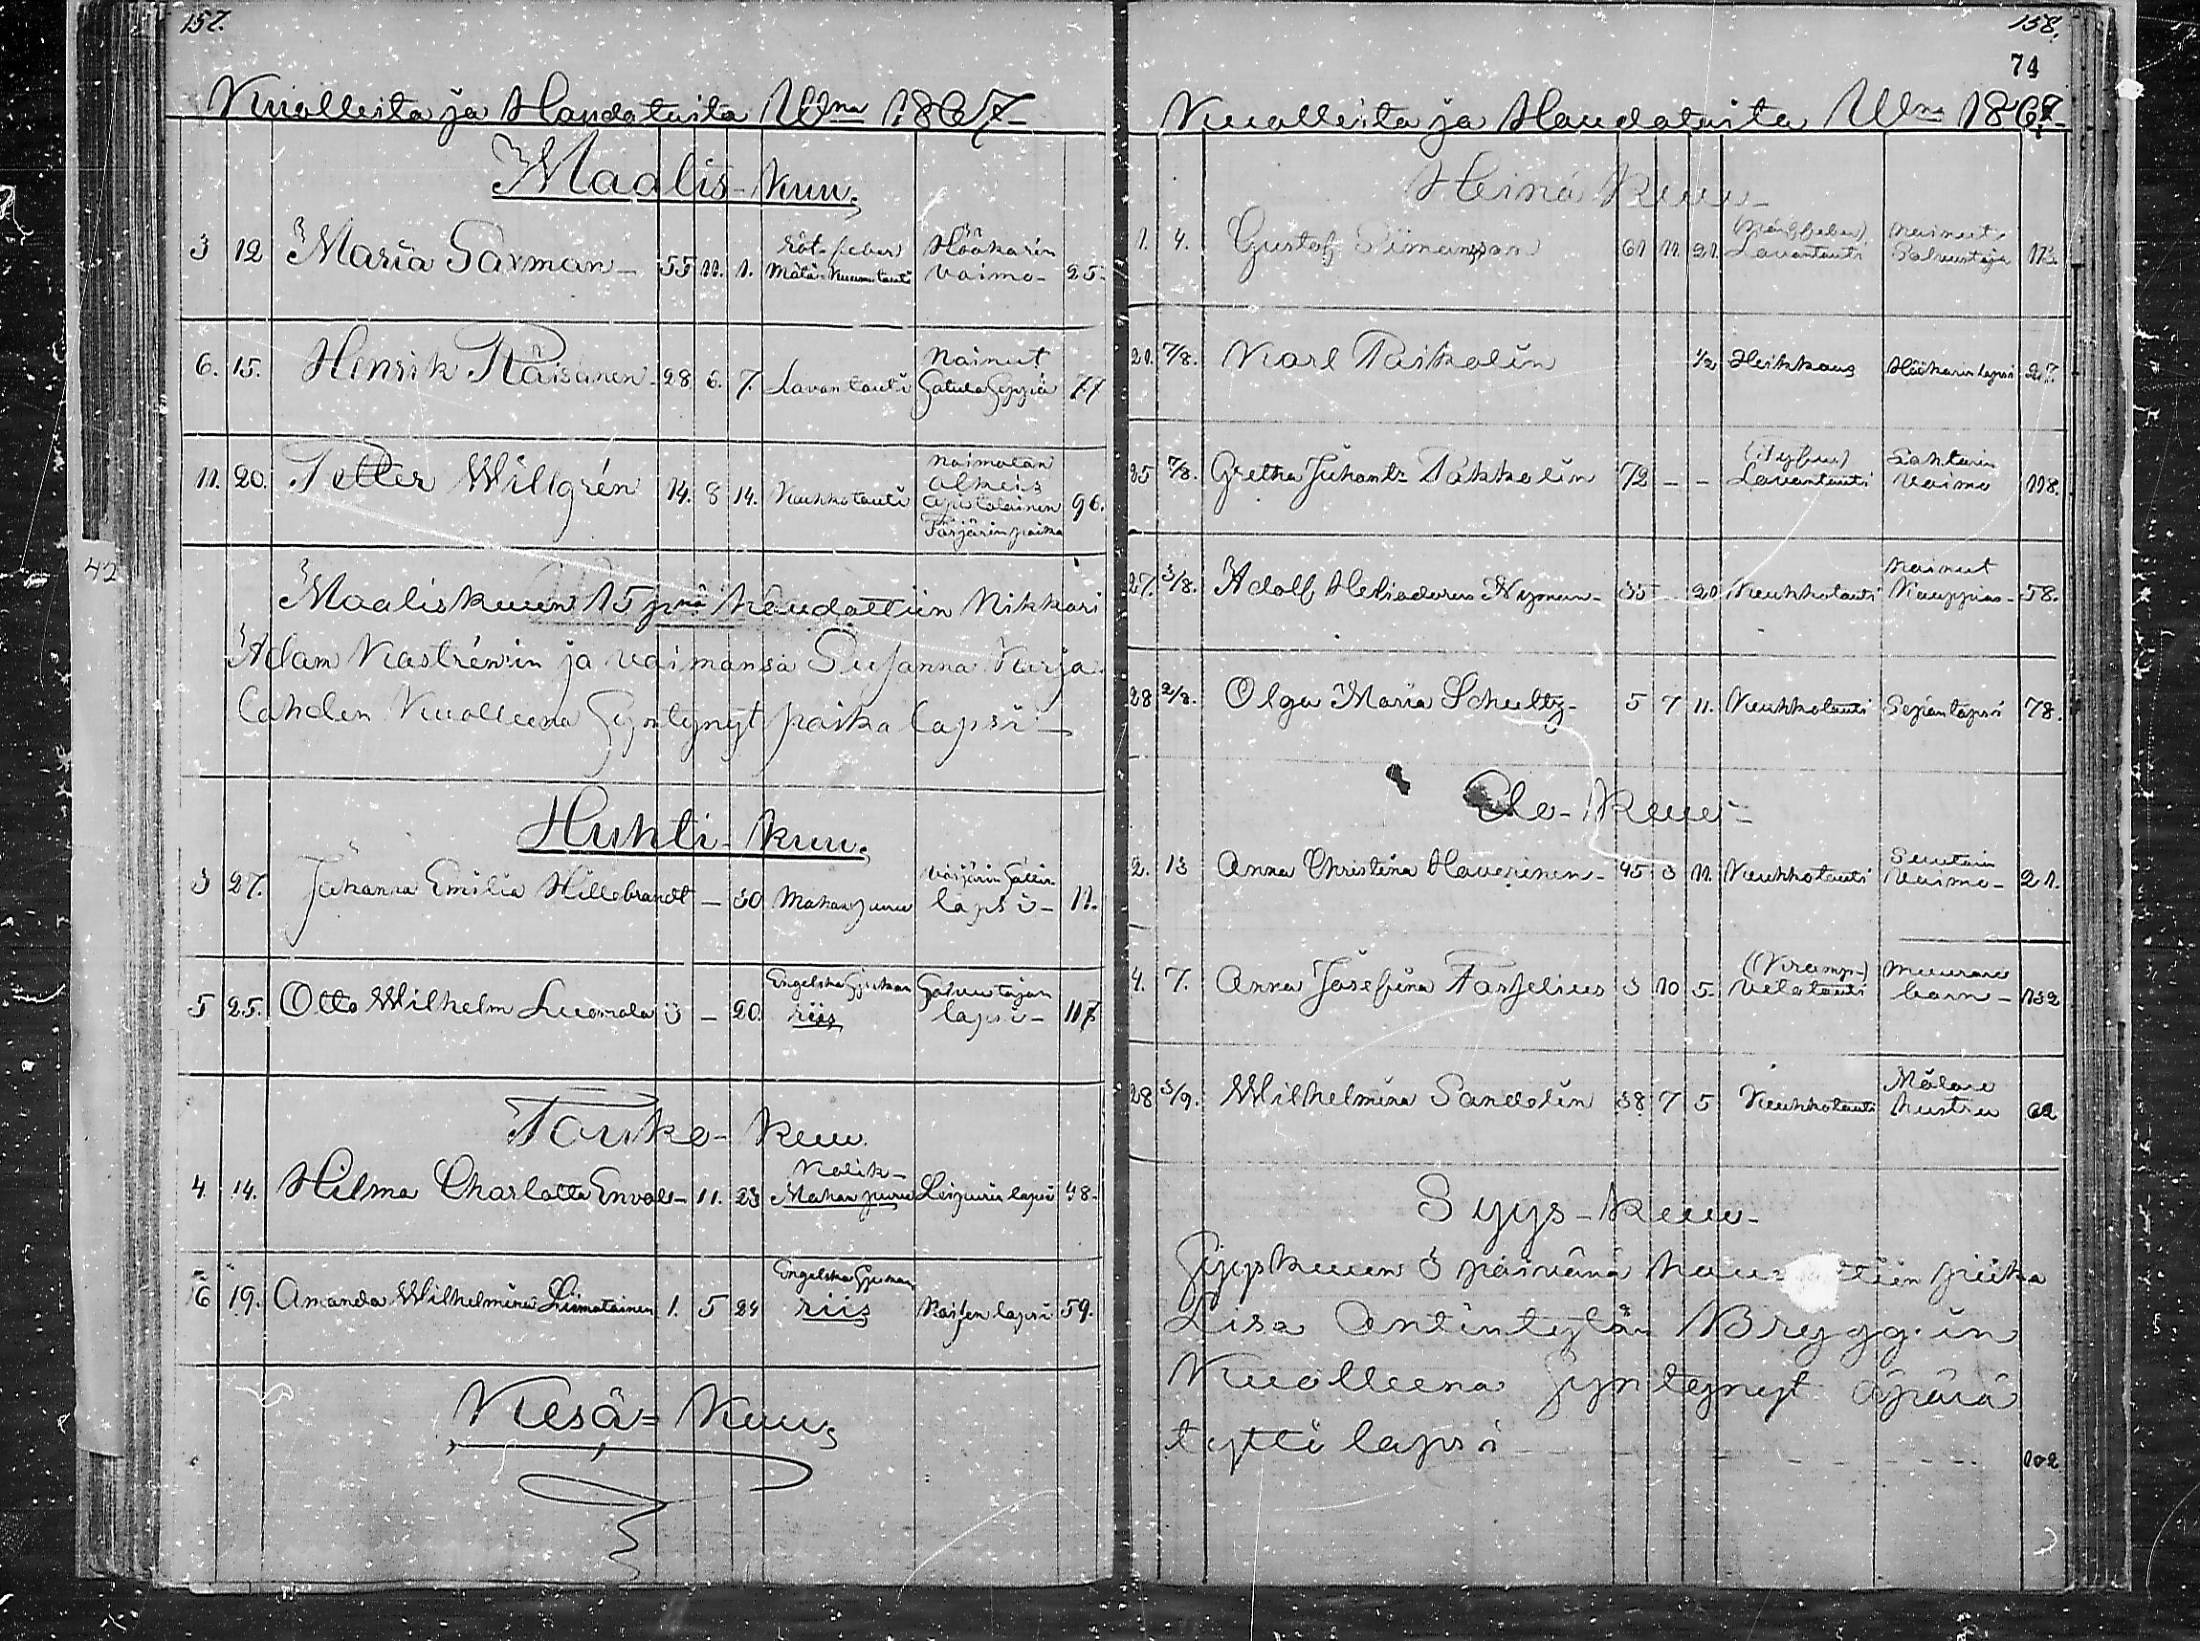 157.
Kuolleita ja Haudatuita Wna 1867-
Maalis-kuu,
3 12 Maria Saxman- 55 11. 1. Röt-feber Mätä-kuumetauti Höökarin vaimo- 25.
6. 15. Henrik Räisänen- 28 6. 7. Lavantauti Nainut Satula Seppiä 77
11. 20. Petter Willgrén 14. 8 14. Keuhkotauti Naimatoin Färjärin poika 96.
Maaliskuun 15pnä haudattiin Nikkari
Adam Kastrénin ja vaimonsa Susanna Karja-
lahden Kuolleena Syntynyt poika lapsi-
Huhti-kuu,
3 27. Juhanna Emilia Hillebrandt - 30 Mahanpuru lapsi- 11.
5 25. Otto Wilhelm Luomala 3 - 20. Engelska Sjukan riis lapsi- 117
Touko-kuu.
4. 14. Hilma Charlotta Envall- 11. 23 Kolik- Mahanpuru Leipurin lapsi 48-
6 19. Amanda Wilhelmina Liimatainen 1. 5 24 Engelska Sjukan riis lapsi 59.
Kesä=Kuu,
158.
74
Kuolleita ja Haudatuita Wna 1867-
Heinä kuu-
1. 4. Gustaf Simonsson 61 11. 21. Lavantauti Nainut 113.
21. 7/8. Karl Paikolin 1/2 Heikkous Höökarin lapsi 27.
25 7/8. Gretha Juhant. Pakkolin 72 - - (Tyfus) Lavantauti vaimo 118.
27. 3/8. Adolf Heliodorus Nyman- 35 20 Keuhkotauti Nainut Kauppias- 58.
28 2/8. Olga Maria Schultz- 5 7 11. Keuhkotauti Sepän lapsi 78.
Elo-kuu-
2. 13 Anna Christina Haverinen- 45 3 11. Keuhkotauti Suutarin Vaimo- 21.
4. 7. Anna Josefina Forselius 3 10 5. (Kramp-) Vetotauti barn- 132
28 3/9. Wilhelmina Sandelin 38 7 5 Keuhkotauti Målare hustru 62
Syys-kuu-
Syyskuun 3 päivänä hau ttiin piika
Lisa Antintytär Brygg.in
Kuolleena Syntynyt äpärä
tyttö lapsi - - - - - - - 102
42